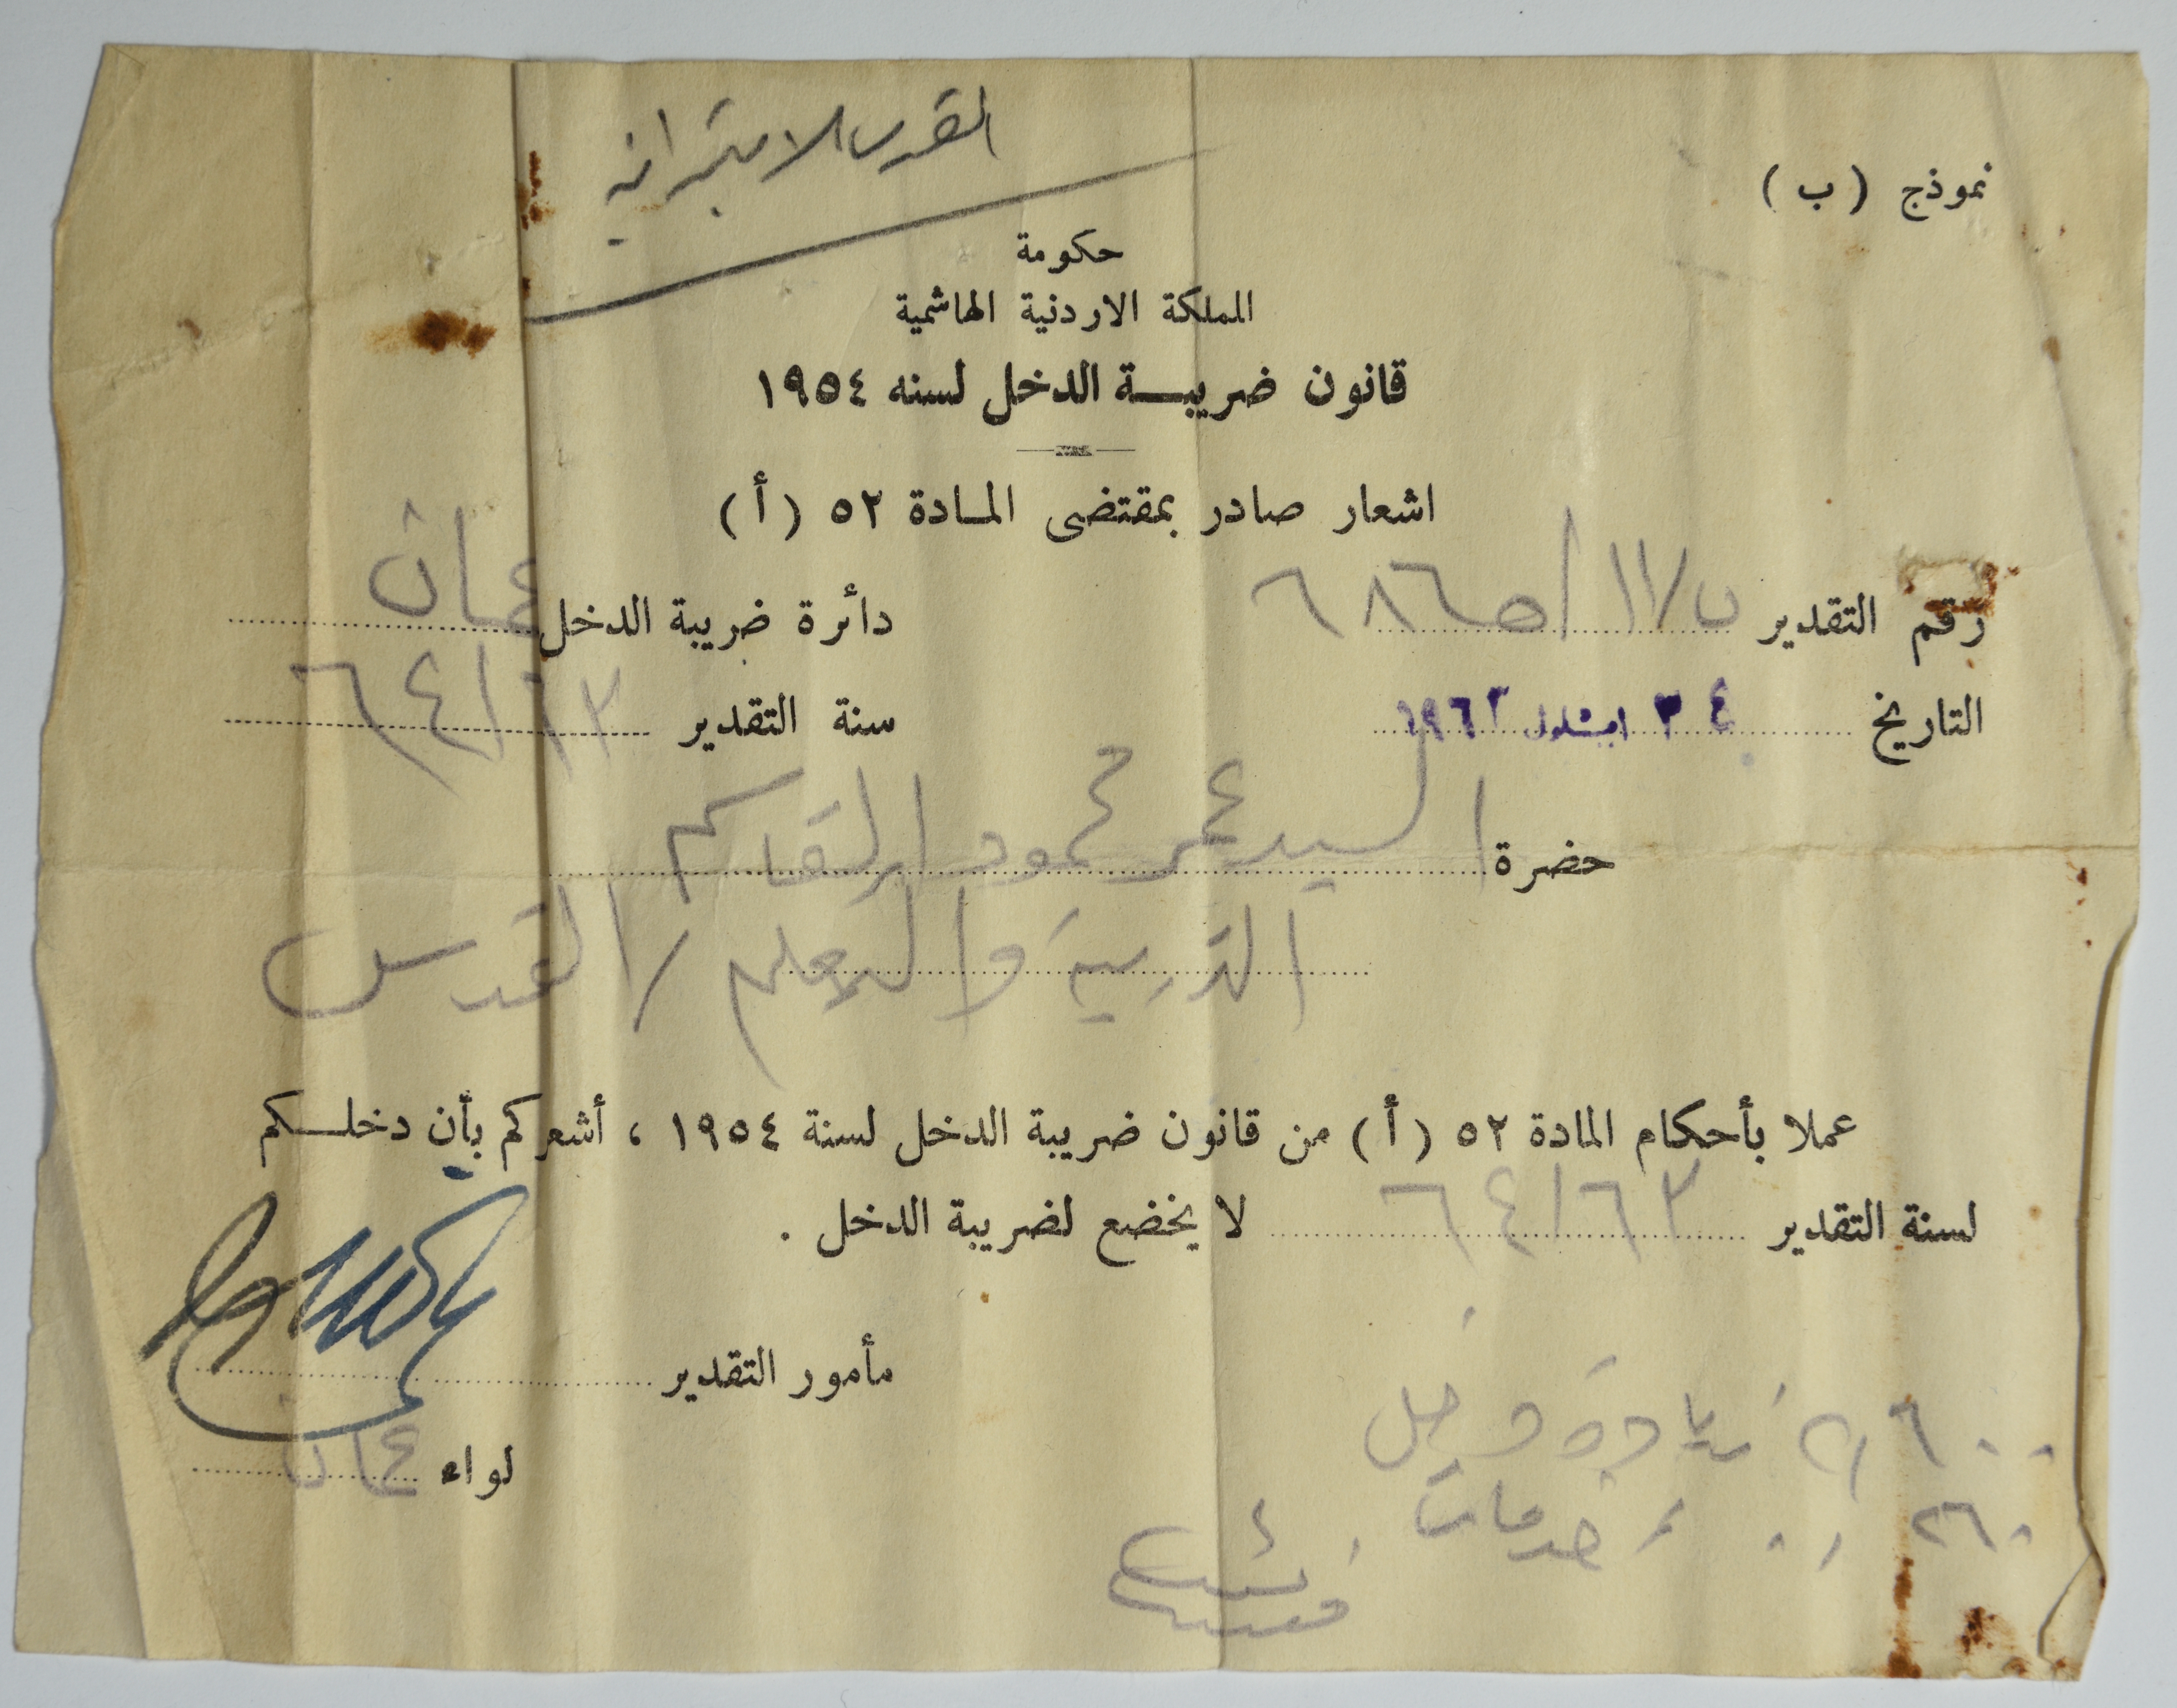 القدس الابتدائية
نموذج ( ب )
حكومة
المملكة الاردنية الهاشمية
قانون ضريبة الدخل لسنه ١٩٥٤
اشعار صادر بمقتضى المادة ٥٢ ( أ )
رقم التقدير
دائرة ضريبة الدخل عمان
التاريخ ايلول ١٩٦٣
سنة التقدير ٦٤/٦٣
حضرة السيد عمر محمود القاسم
التربية والتعليم / القدس
عملا بأحكام المادة ٥٢ ( أ ) من قانون ضريبة الدخل لسنة ١٩٥٤ ، أشعركم بأن دخلكم
لسنة التقدير ٦٤/٦٣ لا يخضع لضريبة الدخل .
مأمور التقدير
لواء عمان
خدمات